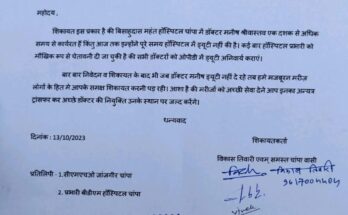 महोदय,
शिकायत इस प्रकार है की बिसाहूदास महंत हॉस्पिटल चांपा में डॉक्टर मनीष श्रीवास्तव एक दशक से अधिक
समय से कार्यरत हैं किंतु आज तक इन्होंने पूरे समय हॉस्पिटल में ड्यूटी नहीं की है। कई बार हॉस्पिटल प्रभारी को
मौखिक रूप से चेतावनी दी जा चुकी है की सभी डॉक्टरों को ओपीडी में ड्यूटी अनिवार्य कराएं।
बार बार निवेदन व शिकायत के बाद भी जब डॉक्टर मनीष ड्यूटी नहीं दे रहे तब हमे मजबूरन मरीज
लोगों के हित मे आपके समक्ष शिकायत करनी पड़ रही। आशा है की मरीजों को अच्छी सेवा देने आप इनका अन्यत्र
ट्रांसफर कर अच्छे डॉक्टर की नियुक्ति उनके स्थान पर जल्द करेंगे।
धन्यवाद
दिनांक : 13/10/2023
शिकायतकर्ता
विकास तिवारी एवम् समस्त चांपा वासी
प्रतिलिपि : 1.सीएमएचओ जांजगीर चांपा
2. प्रभारी बीडीएम हॉस्पिटल चांपा
विकास तिवारी